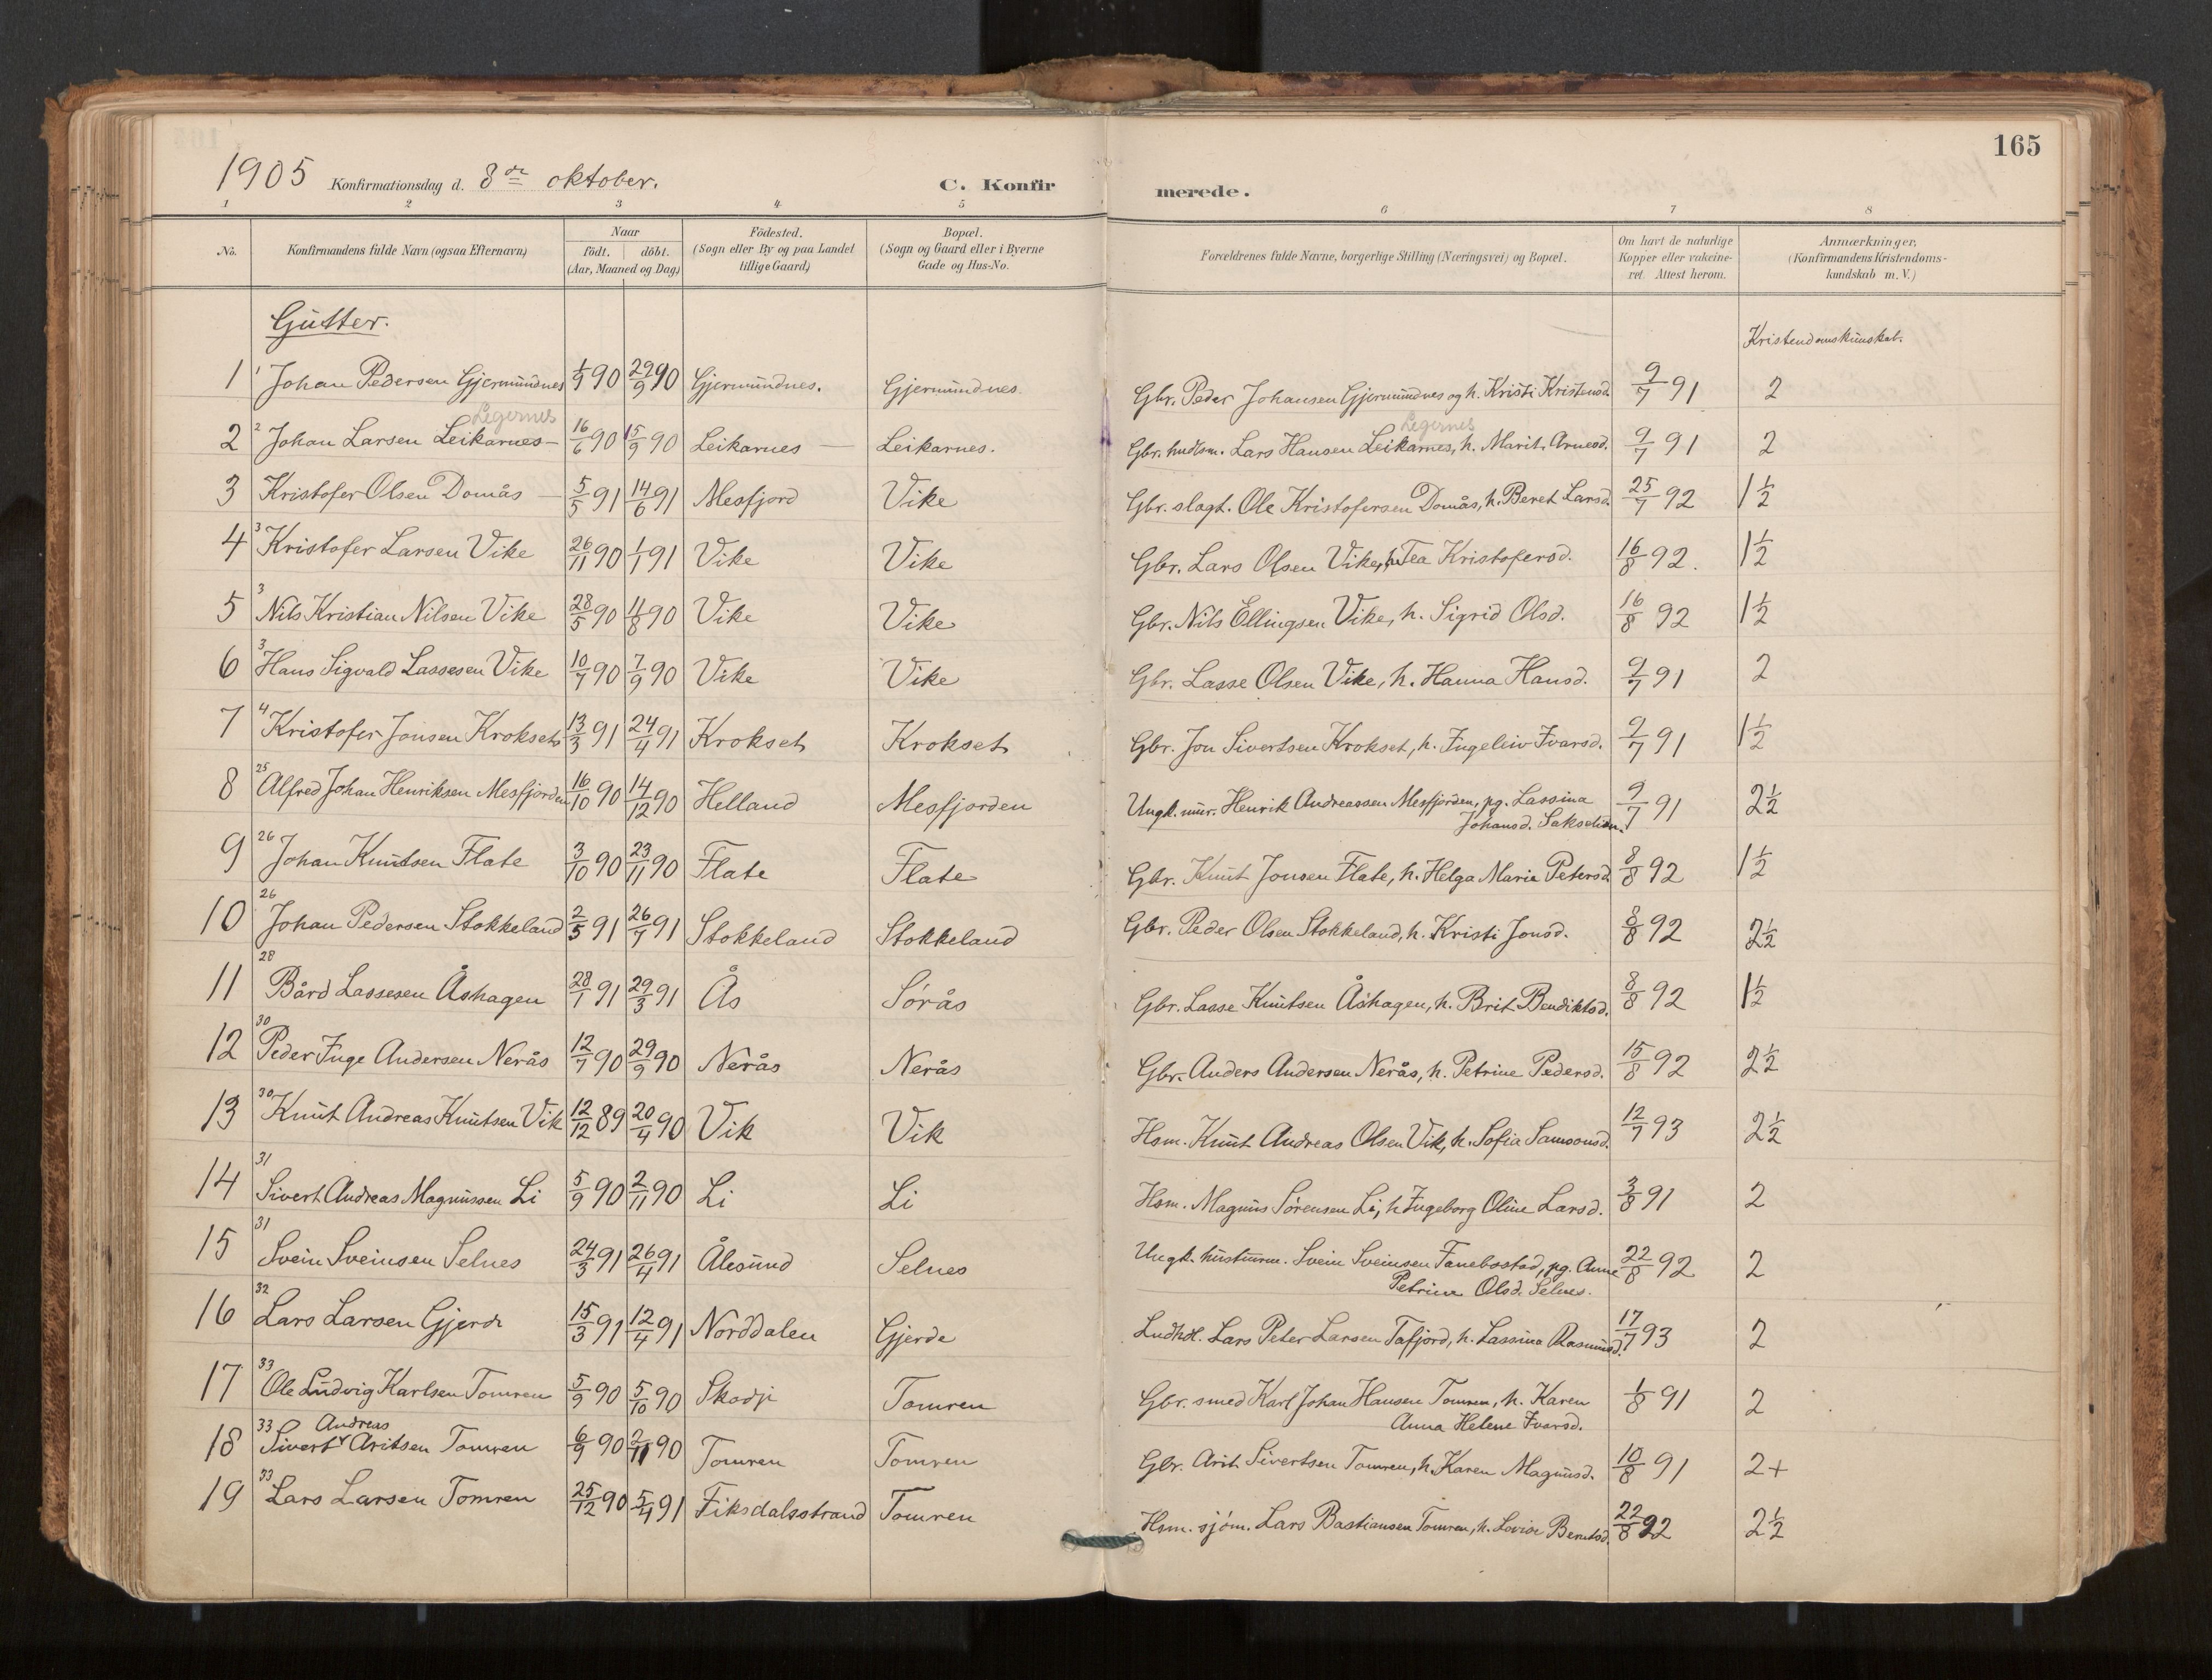 165
1905 Konfirmationsdag d. 8de oktober. C. Konfirmerede.
1 2 3 4 5 6 7 8
No. Konfirmandens fulde Navn (ogsaa Efternavn) Naar født. døbt. (Aar, Maaned og Dag) Födested. (Sogn eller By og paa Landet tillige Gaard) Bopæl. (Sogn og Gaard eller i Byerne Gade og Hus-No. Forældrenes fulde Navne, borgerlige Stilling (Næringsvei) og Bopæl. Om havt de naturlige Kopper eller vakcineret. Attest herom. Anmærkninger, (Konfirmandens Kristendomskundskab m. V.)
Gutter.
Kristendomskunskab.
1 1 Johan Pedersen Gjermundnes 1/9 90 29/9 90 Gjermundnes. Gjermundnes. Gbr. Peder Johansen Gjermundnes og h. Kristi Kristensd. 9/7 91 2
Legernes Legernes
2 2 Johan Larsen Leikarnes – 16/6 90 15/9 90 Leikarnes – Leikarnes. Gbr. hndlsm. Lars Hansen Leikarnes, h. Marit Arnesd. 9/7 91 2
3 Kristofer Olsen Domås – 5/5 91 14/6 91 Mesfjord Vike Gbr. slagt. Ole Kristofersen Domås, h. Beret Larsd. 25/7 92 1 1/2
4 3 Kristofer Larsen Vike 26/11 90 1/1 91 Vike Vike Gbr. Lars Olsen Vike, h. Tea Kristofersd. 16/8 92. 1 1/2
5 3 Nils Kristian Nilsen Vike 28/5 90 4/8 90 Vike Vike Gbr. Nils Ellingsen Vike, h. Sigrid Olsd. 16/8 92 1 1/2
6 3 Hans Sigvald Lassesen Vike 10/7 90 7/9 90 Vike Vike Gbr. Lasse Olsen Vike, h. Hanna Hansd. 9/7 91 2
7 4 Kristofer Jonsen Krokset 13/3 91 24/4 91 Krokset Krokset Gbr. Jon Sivertsen Krokset, h. Ingeleiv Ivarsd. 9/7 91 1 1/2
8 25 Alfred Johan Henriksen Mesfjorden 16/10 90 14/12 90 Helland Mesfjorden Ungk. mur. Henrik Andreassen Mesfjorden, pg. Lassina 9/7 91 2 1/2
Johansd. Sakselien.
9 26 Johan Knutsen Flate 3/10 90 23/11 90 Flate Flate Gbr. Knut Jonsen Flate, h. Helga Marie Petersd. 8/8 92 1 1/2
10 26 Johan Pedersen Stokkeland 2/5 91 26/7 91 Stokkeland Stokkeland Gbr. Peder Olsen Stokkeland, h. Kristi Jonsd. 8/8 92 2 1/2
11 28 Bård Lassesen Åshagen 28/1 91 29/3 91 Ås Sørås Gbr. Lasse Knutsen Åshagen, h. Brit Bendiktsd. 8/8 92 1 1/2
12 30 Peder Inge Andersen Nerås 12/7 90 29/9 90 Nerås Nerås Gbr. Anders Andersen Nerås, h. Petrine Pedersd. 15/8 92 2 1/2
13 30 Knut Andreas Knutsen Vik 12/12 89 20/4 90 Vik Vik Hsm. Knut Andreas Olsen Vik, h. Sofia Samsonsd. 12/7 93 2 1/2
14 31 Sivert Andreas Magnussen Li 5/9 90 2/11 90 Li Li Hsm. Magnus Sørensen Li, h. Ingeborg Oline Larsd. 3/8 91 2
15 31 Svein Sveinsen Selnes 24/3 91 26/4 91 Ålesund Selnes Ungk. Svein Sveinsen Tanebostad, pg. Anne 22/8 92 2
Petrine Olsd. Selnes.
16 32 Lars Larsen Gjerde 15/3 91 12/4 91 Norddalen Gjerde Lndhdl. Lars Peter Larsen Tafjord, h. Lassina Rasmusd. 17/7 93 2
17 33 Ole Ludvig Karlsen Tomren 5/9 90 5/10 90 Skodje Tomren Gbr. smed Karl Johan Hansen Tomren, h. Karen 1/8 91 2
Anna Helene Ivarsd.
Andreas
18 33 Sivert Aritsen Tomren 6/9 90 2/11 90 Tomren Tomren Gbr. Arit Sivertsen Tomren, h. Karen Magnusd. 10/8 91 2+
19 33 Lars Larsen Tomren 25/12 90 5/4 91 Fiksdalsstrand Tomren Hsm. sjøm. Lars Bastiansen Tomren, h. Lovise Berntsd. 22/8 92 2 1/2